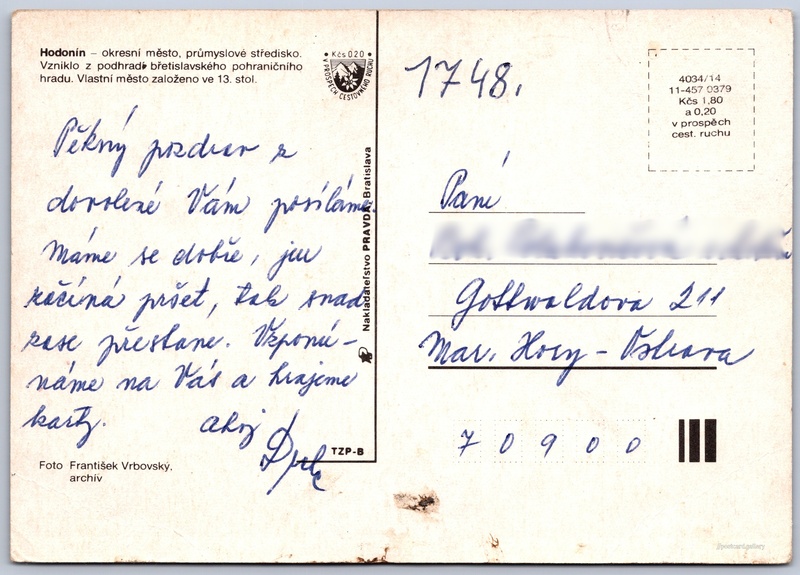 Hodonín – okresní město, průmyslové středisko.
Vzniklo z podhradí břetislavského pohraničního
hradu. Vlastní město založeno ve 13. stol.
Kčs 0.20
V PROSPĚCH CESTOVNÉHO RUCHU
Pěkný pozdrav z
dovolené Vám posíláme.
Máme se dobře, jen
začíná pršet, tak snad
zase přestane. Vzpomí-
náme na Vás a hrajeme
karty. ahoj
Foto František Vrbovský,
archív
TZP-B
Nakladatelství PRAVDA Bratislava
1748.
4034/14
11-457 0379
Kčs 1,80
a 0,20
v prospěch
cest. ruchu
Paní
Gottwaldova 211
Mar. Hory - Ostrava
7 0 9 0 0